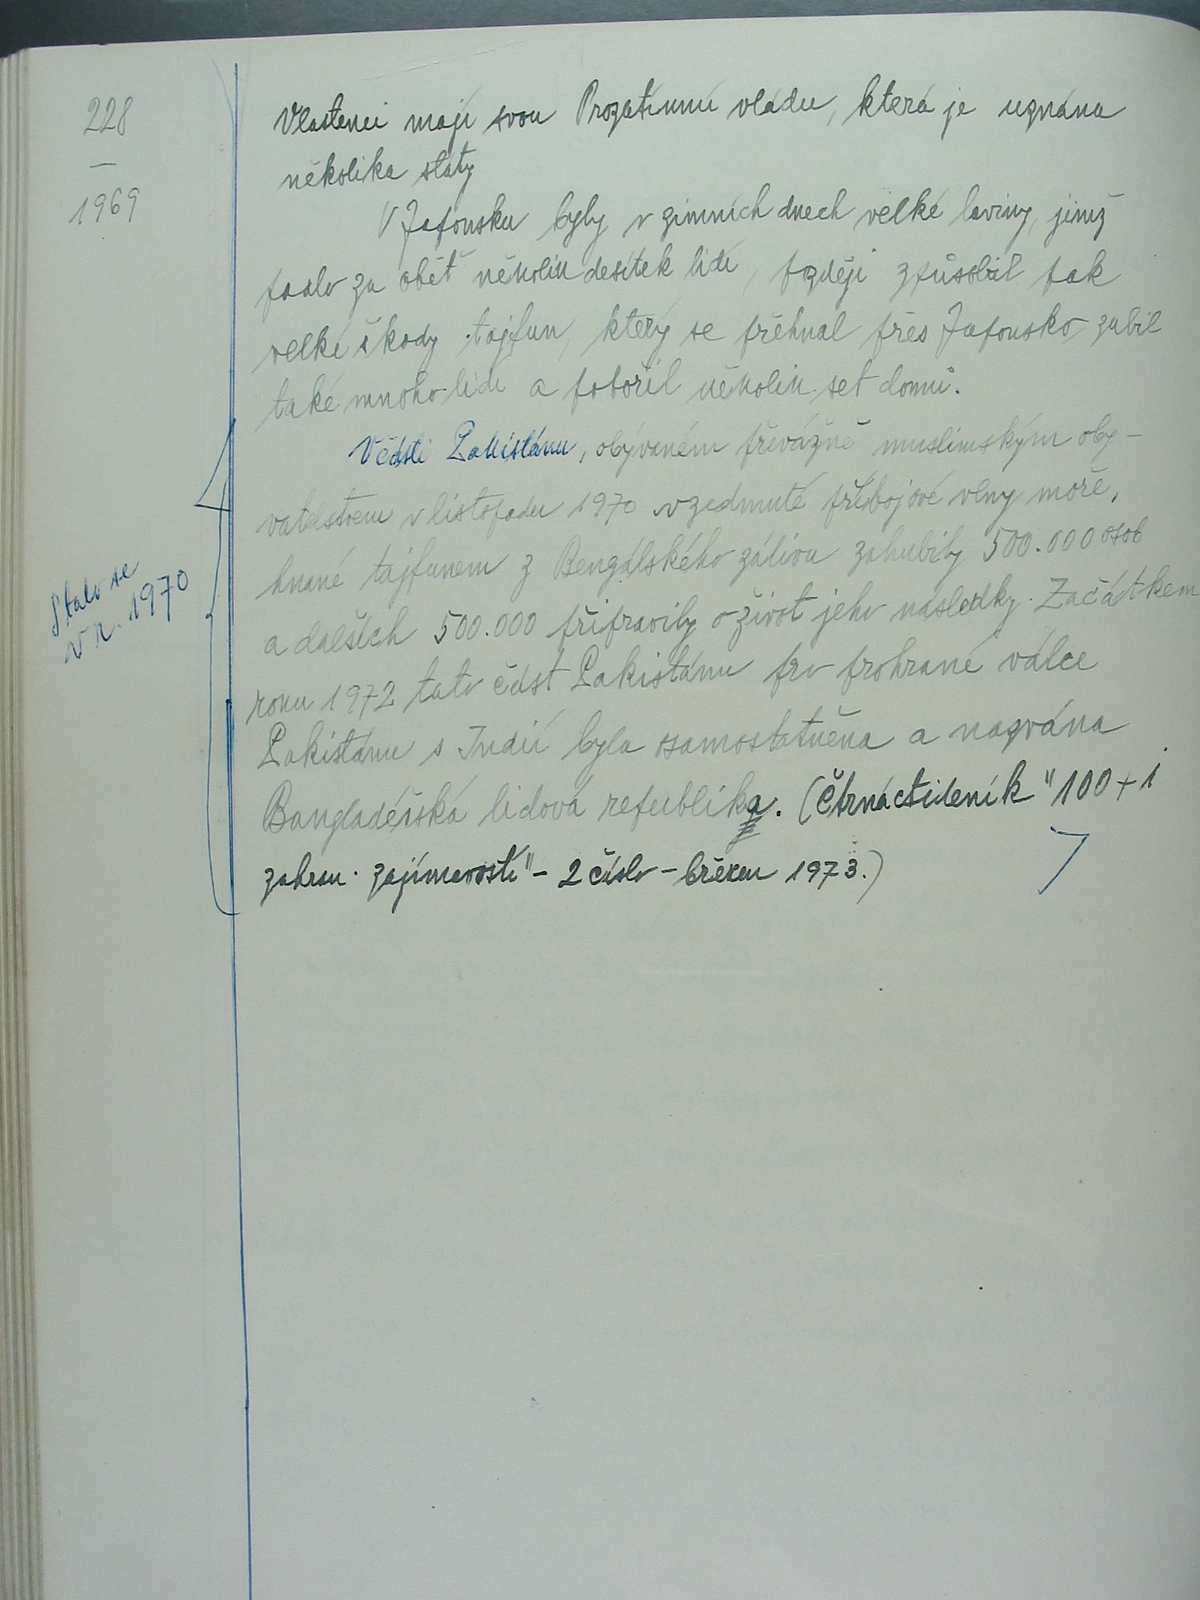 228
—
1969
Vlastenci mají svou Prozatimní vládu, která je uznána
několika státy
V Japonsku byly v zimních dnech velké laviny, jimž
padlo za oběť několik desítek lidí, později způsobil pak
velké škody tajfun, který se přehnal přes Japonsko, zabil
také mnoho lidí a pobořil několik set domů.
V části Pakistánu, obývaném převážně muslimským oby-
vatelstvem v listopadu 1970 vzedmuté příbojové vlny moře,
hnané tajfunem z Bengálského zálivu zahubily 500.000 osob
a dalších 500.000 připravily o život jeho následky. Začátkem
roku 1972 tato část Pakistánu po prohrané válce
Pakistánu s Indií byla osamostatněna a nazvána
Bangladéšská lidová republika. (Čtrnáctideník "100+1
zahran. zajímavostí" - 2 číslo - březen 1973.)
Stalo se
v r. 1970